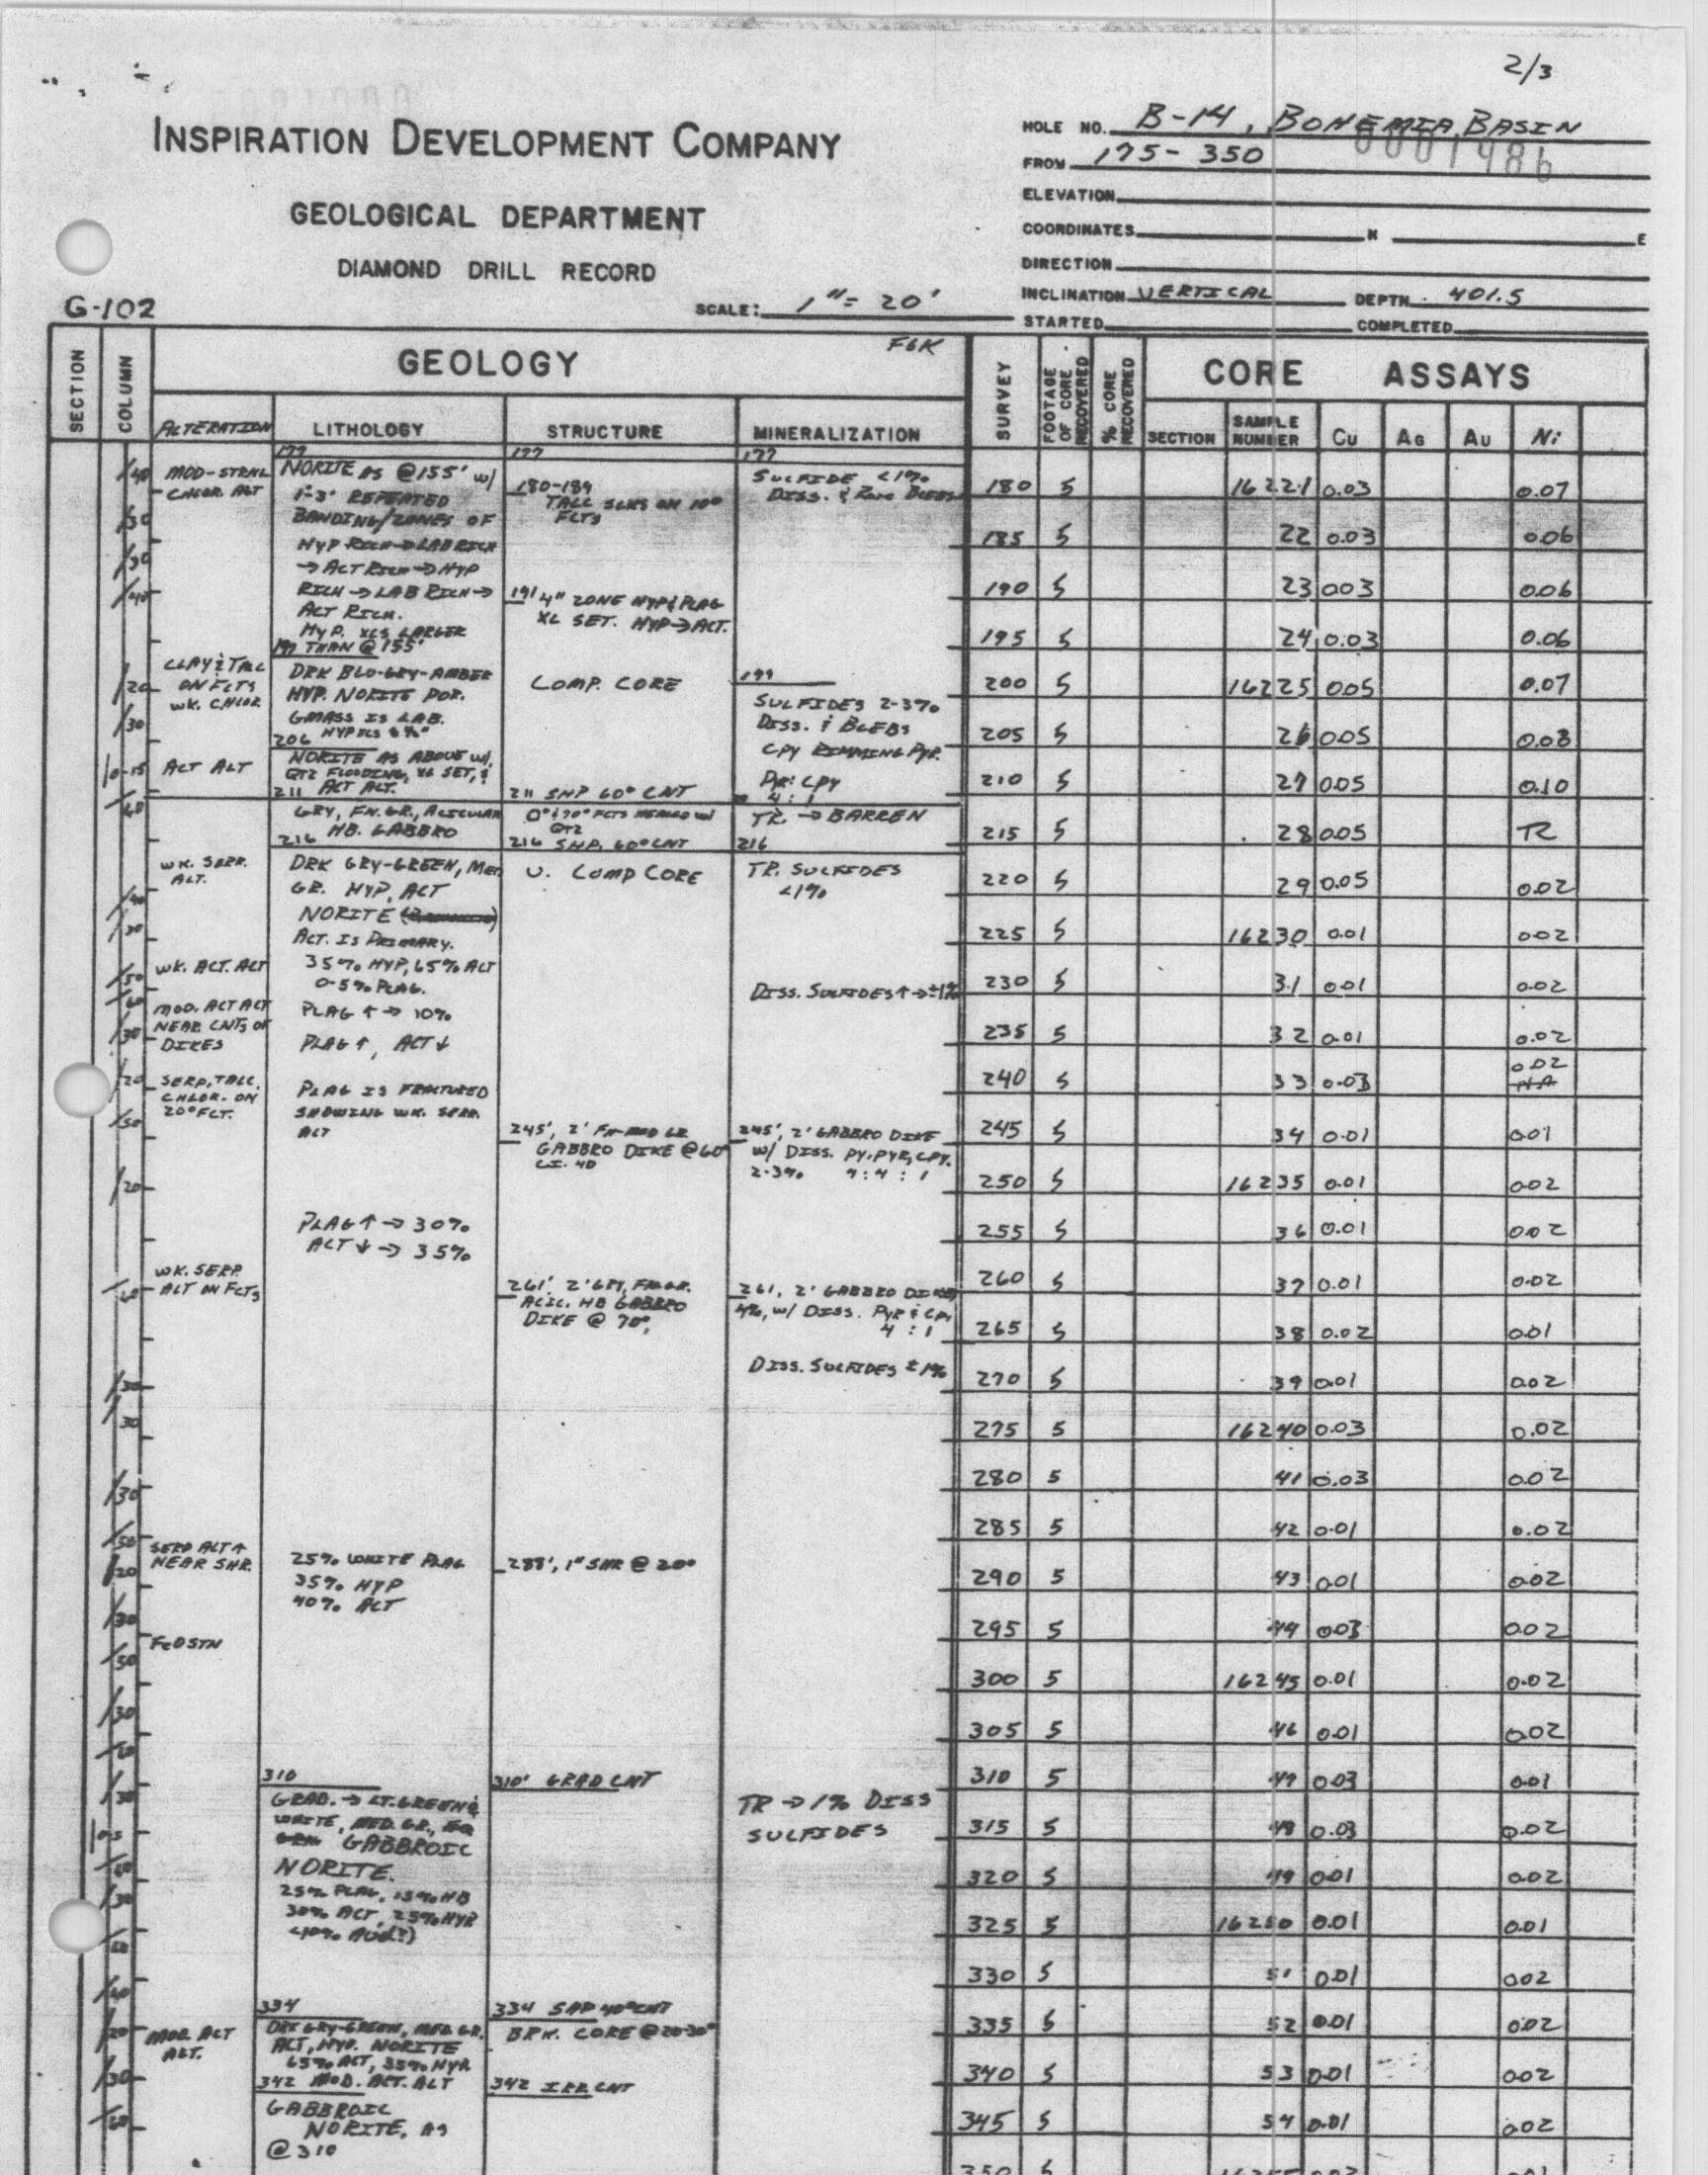 2/3
INSPIRATION DEVELOPMENT COMPANY
GEOLOGICAL DEPARTMENT
DIAMOND DRILL RECORD
G-102
SCALE: 1"= 20'
HOLE NO. B-14, BOHEMIA BASIN
0001486
FROM 175- 350
ELEVATION
COORDINATES N E
DIRECTION
INCLINATION VERTICAL DEPTH 401.5
STARTED COMPLETED
SECTION
COLUMN
GEOLOGY FGK
ALTERATION LITHOLOGY STRUCTURE MINERALIZATION
SURVEY
FOOTAGE OF CORE RECOVERED
% CORE RECOVERED
CORE ASSAYS
SECTION SAMPLE NUMBER Cu AG AU Ni
MOD-STRNG
CHLOR. ALT
CLAY & TALC
ON FLTS
WK. CHLOR
ACT ALT
WK. SERP.
ALT.
WK. ACT. ALT
MOD. ACT ALT
NEAR CNTS OF
DIKES
SERP, TALC,
CHLOR. ON
20° FCT.
WK. SERP.
ALT ON FCTS
SERP ALT ↑
NEAR SHR.
FEO STN
MOD. ACT
ALT.
177
NORITE AS @155' w/
1-3' REPEATED
BANDING/ZONES OF
HYP RICH → LAB RICH
→ ACT RICH → HYP
RICH → LAB RICH →
ACT RICH.
HYP. XLS LARGER
THAN @155'
DRK BLU-GRY-AMBER
HYP. NORITE POR.
GMASS IS LAB.
206
NORITE AS ABOVE w/
QTZ FLOODING, XL SET, &
211 ACT ALT.
GRY, FN. GR., ACICULAR
216 HB. GABBRO
DRK GRY-GREEN, MED
GR. HYP, ACT
NORITE
ACT. IS PRIMARY.
35% HYP, 65% ACT
0-5% PLAG.
PLAG ↑ → 10%
PLAG ↑, ACT ↓
PLAG IS FRACTURED
SHOWING WK. SERP.
ALT
PLAG ↑ → 30%
ACT ↓ → 35%
25% WHITE PLAG
35% HYP
40% ACT
310
GRAD. → LT. GREEN &
WHITE, MED. GR.,
GABBROIC
NORITE.
25% PLAG, 15% HB
30% ACT, 25% HYP
334
DRK GRY-GREEN, MED. GR.
ACT, HYP. NORITE
65% ACT, 35% HYP
342 MOD. ACT. ALT
GABBROIC
NORITE, AS
@310
177
180-189
TALC SLKS ON 10°
FLTS
191 4" ZONE HYP & PLAG
XL SET. HYP → ACT.
COMP. CORE
211 SHP 60° CNT
QTZ
216 SHP. 60° CNT
V. COMP CORE
245', 2' FN-MED GR
GABBRO DIKE @60°
261', 2' GRY, FN. GR.
ACIC. HB GABBRO
DIKE @ 70°
288', 1" SHR @ 20°
310' GRAD CNT
334 SHP 40° CNT
BRK. CORE @20-30°
342 IRR CNT
177
SULFIDE <1%
DISS. & RARE BLEBS
199
SULFIDES 2-3%
DISS. & BLEBS
CPY RIMMING PYR.
PYR: CPY
4 : 1
TR. → BARREN
216
TR. SULFIDES
<1%
DISS. SULFIDES ↑ → ±1%
245', 2' GABBRO DIKE
w/ DISS. PY, PYR, CPY.
2-3% 4 : 4 : 1
261, 2' GABBRO DIKE
4%, w/ DISS. PYR & CPY
4 : 1
DISS. SULFIDES ±1%
TR → 1% DISS
SULFIDES
180 5 16221 0.03 0.07
185 5 22 0.03 0.06
190 5 23 003 0.06
195 5 24 0.03 0.06
200 5 16225 0.05 0.07
205 5 26 0.05 0.08
210 5 27 0.05 0.10
215 5 28 0.05 TR
220 5 29 0.05 0.02
225 5 16230 0.01 0.02
230 5 31 0.01 0.02
235 5 32 0.01 0.02
240 5 33 0.03 0.02 NA
245 5 34 0.01 0.01
250 5 16235 0.01 0.02
255 5 36 0.01 0.02
260 5 37 0.01 0.02
265 5 38 0.02 0.01
270 5 39 0.01 0.02
275 5 16240 0.03 0.02
280 5 41 0.03 0.02
285 5 42 0.01 0.02
290 5 43 0.01 0.02
295 5 44 0.03 0.02
300 5 16245 0.01 0.02
305 5 46 0.01 0.02
310 5 47 0.03 0.01
315 5 48 0.03 0.02
320 5 49 0.01 0.02
325 5 16250 0.01 0.01
330 5 51 0.01 0.02
335 5 52 0.01 0.02
340 5 53 0.01 0.02
345 5 54 0.01 0.02
350 5